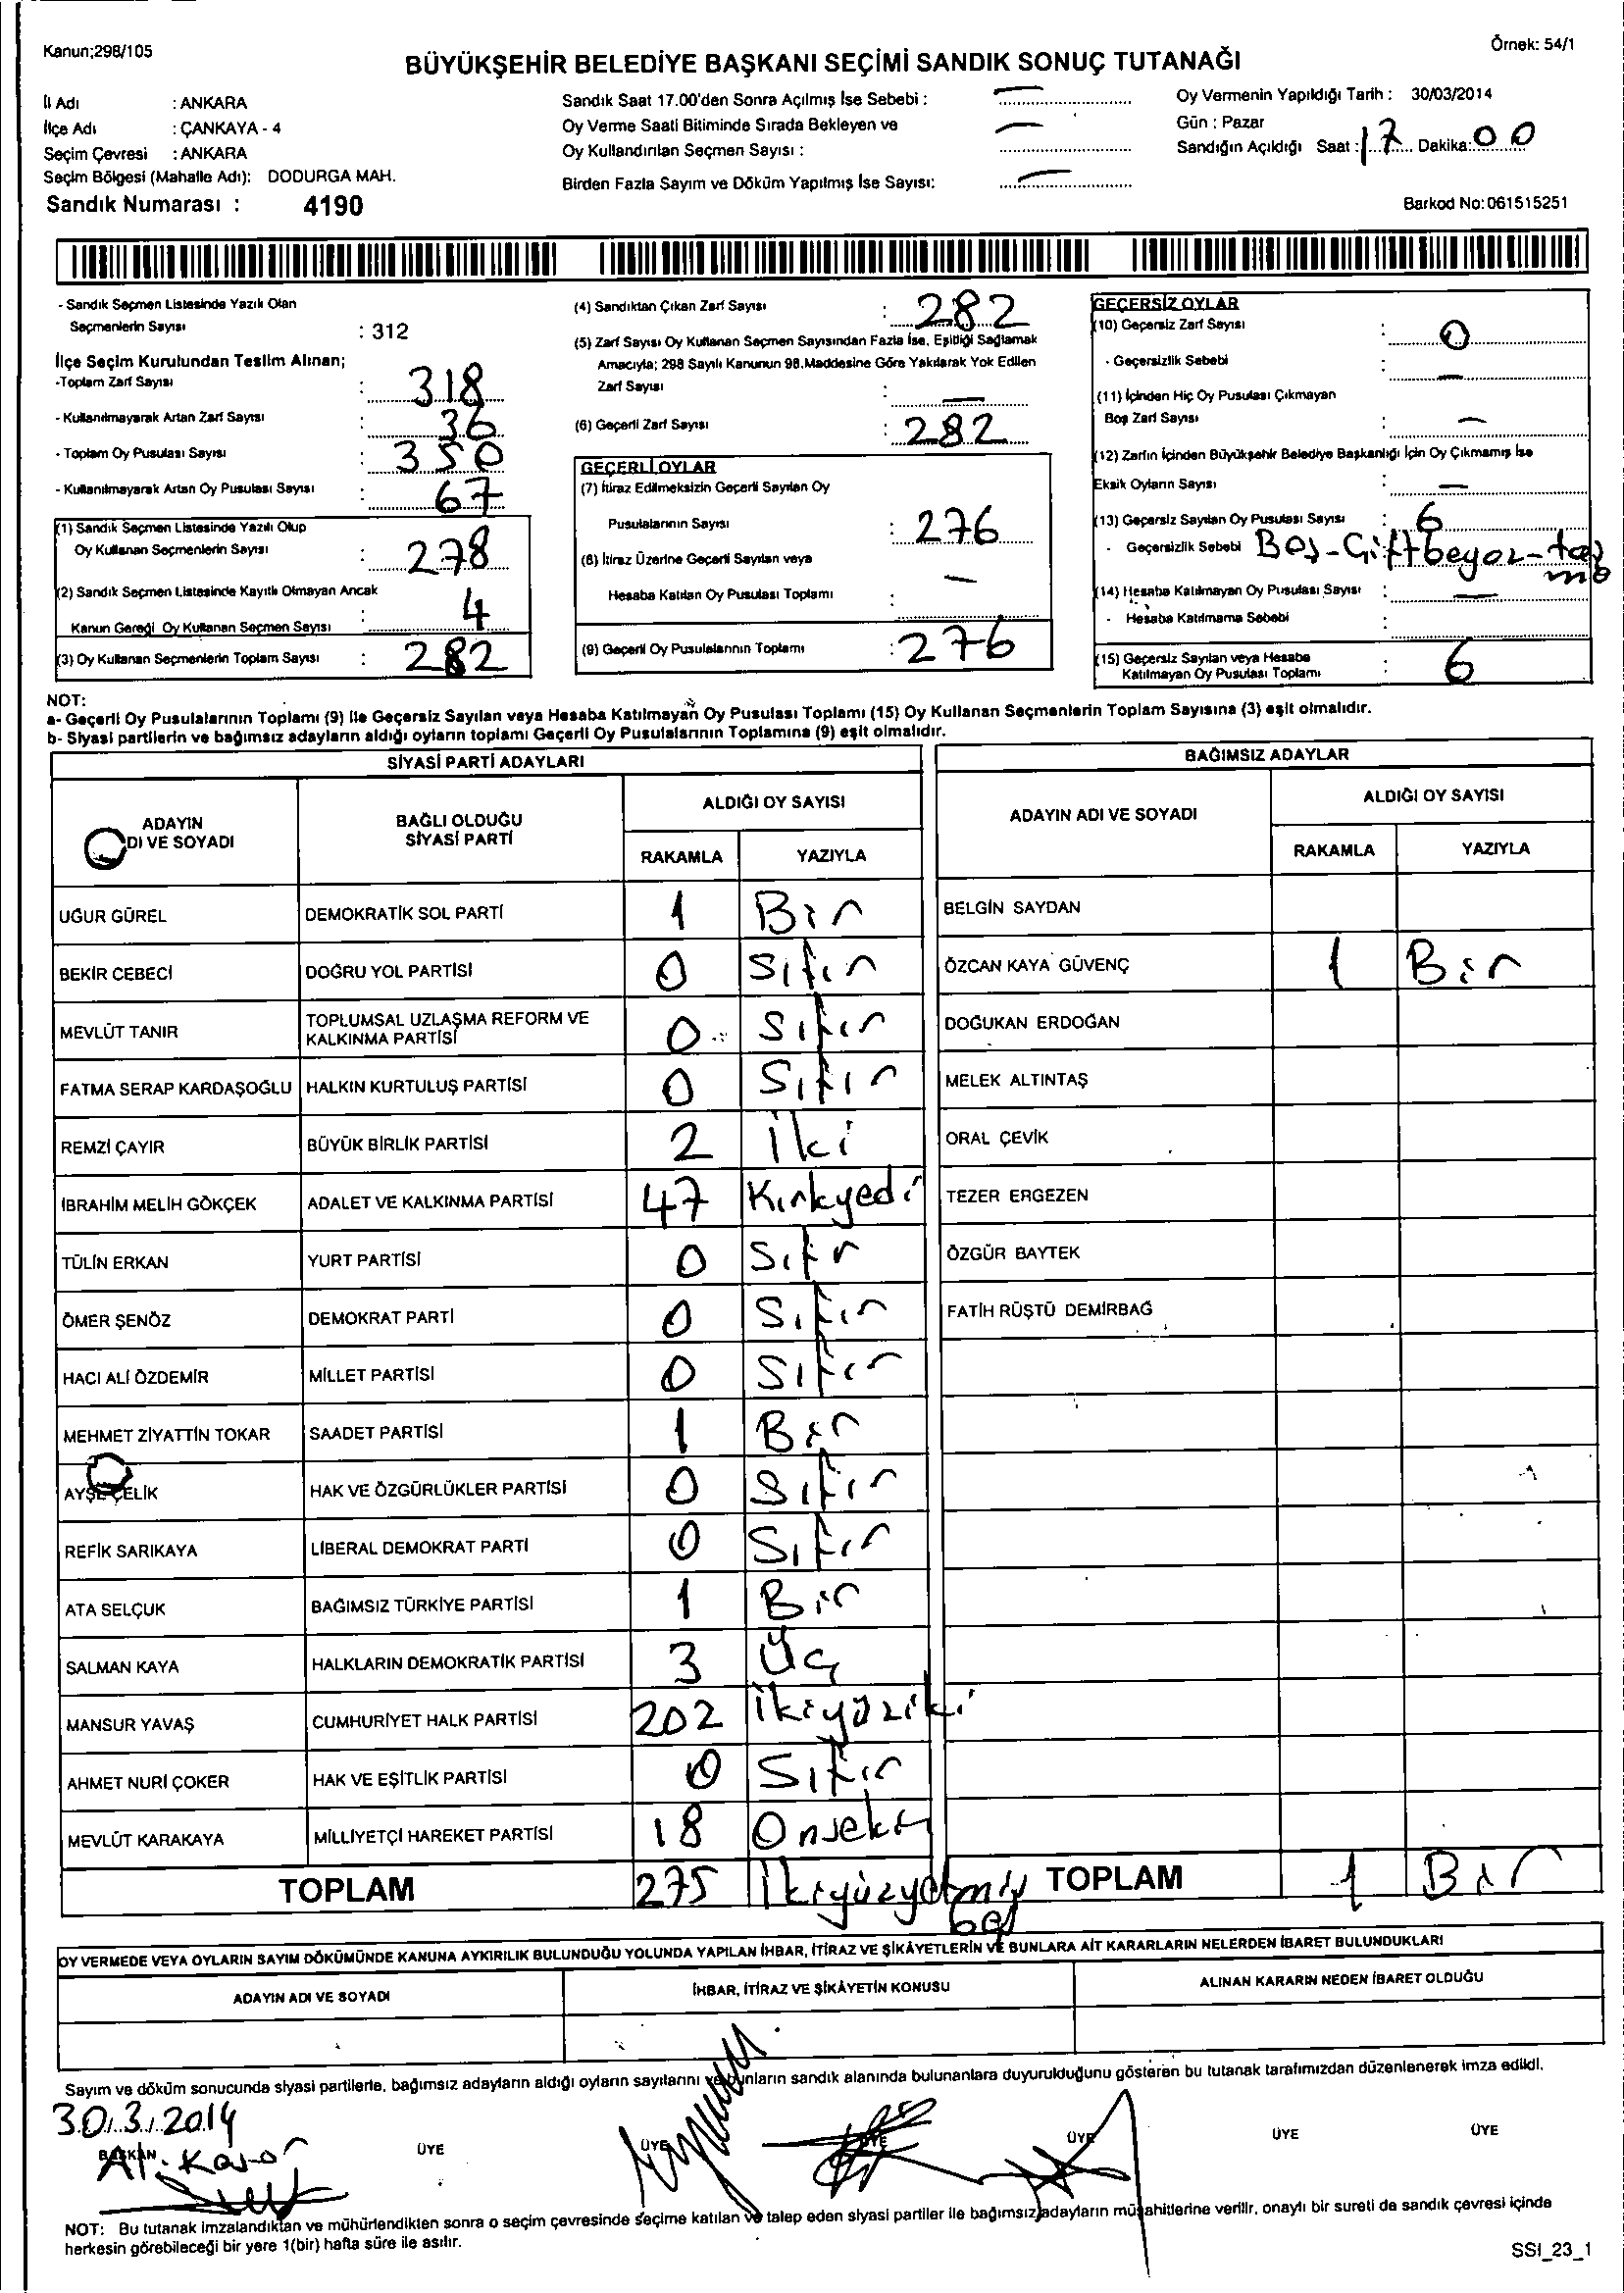 Kanun;298/105
Örnek: 54/1
BÜYÜKŞEHİR BELEDİYE BAŞKANI SEÇİMİ SANDIK SONUÇ TUTANAĞI
İl Adı : ANKARA
İlçe Adı : ÇANKAYA - 4
Seçim Çevresi : ANKARA
Seçim Bölgesi (Mahalle Adı): DODURGA MAH.
Sandık Numarası : 4190
Sandık Saat 17.00'den Sonra Açılmış İse Sebebi : —
Oy Verme Saati Bitiminde Sırada Bekleyen ve
Oy Kullandırılan Seçmen Sayısı : —
Birden Fazla Sayım ve Döküm Yapılmış İse Sayısı: —
Oy Vermenin Yapıldığı Tarih : 30/03/2014
Gün : Pazar
Sandığın Açıldığı Saat : 17 Dakika: 00
Barkod No: 061515251
- Sandık Seçmen Listesinde Yazılı Olan
Seçmenlerin Sayısı : 312
İlçe Seçim Kurulundan Teslim Alınan;
-Toplam Zarf Sayısı : 318
- Kullanılmayarak Artan Zarf Sayısı : 36
- Toplam Oy Pusulası Sayısı : 350
- Kullanılmayarak Artan Oy Pusulası Sayısı : 67
(1) Sandık Seçmen Listesinde Yazılı Olup
Oy Kullanan Seçmenlerin Sayısı : 278
(2) Sandık Seçmen Listesinde Kayıtlı Olmayan Ancak
Kanun Gereği Oy Kullanan Seçmen Sayısı : 4
(3) Oy Kullanan Seçmenlerin Toplam Sayısı : 282
(4) Sandıktan Çıkan Zarf Sayısı : 282
(5) Zarf Sayısı Oy Kullanan Seçmen Sayısından Fazla İse, Eşitliği Sağlamak
Amacıyla; 298 Sayılı Kanunun 98.Maddesine Göre Yakılarak Yok Edilen
Zarf Sayısı : —
(6) Geçerli Zarf Sayısı : 282
GEÇERLİ OYLAR
(7) İtiraz Edilmeksizin Geçerli Sayılan Oy
Pusulalarının Sayısı : 276
(8) İtiraz Üzerine Geçerli Sayılan veya
Hesaba Katılan Oy Pusulası Toplamı : —
(9) Geçerli Oy Pusulalarının Toplamı : 276
GEÇERSİZ OYLAR
(10) Geçersiz Zarf Sayısı : 0
- Geçersizlik Sebebi : —
(11) İçinden Hiç Oy Pusulası Çıkmayan
Boş Zarf Sayısı : —
(12) Zarfın İçinden Büyükşehir Belediye Başkanlığı İçin Oy Çıkmamış İse
Eksik Oyların Sayısı : —
(13) Geçersiz Sayılan Oy Pusulası Sayısı : 6
- Geçersizlik Sebebi Boş-Çift
(14) Hesaba Katılmayan Oy Pusulası Sayısı : —
- Hesaba Katılmama Sebebi :
(15) Geçersiz Sayılan veya Hesaba
Katılmayan Oy Pusulası Toplamı : 6
NOT:
a- Geçerli Oy Pusulalarının Toplamı (9) ile Geçersiz Sayılan veya Hesaba Katılmayan Oy Pusulası Toplamı (15) Oy Kullanan Seçmenlerin Toplam Sayısına (3) eşit olmalıdır.
b- Siyasi partilerin ve bağımsız adayların aldığı oyların toplamı Geçerli Oy Pusulalarının Toplamına (9) eşit olmalıdır.
SİYASİ PARTİ ADAYLARI
ADAYIN
DI VE SOYADI
BAĞLI OLDUĞU
SİYASİ PARTİ
ALDIĞI OY SAYISI
RAKAMLA YAZIYLA
UĞUR GÜREL DEMOKRATİK SOL PARTİ 1 Bir
BEKİR CEBECİ DOĞRU YOL PARTİSİ 0 Sıfır
MEVLÜT TANIR TOPLUMSAL UZLAŞMA REFORM VE
KALKINMA PARTİSİ 0 Sıfır
FATMA SERAP KARDAŞOĞLU HALKIN KURTULUŞ PARTİSİ 0 Sıfır
REMZİ ÇAYIR BÜYÜK BİRLİK PARTİSİ 2 İki
İBRAHİM MELİH GÖKÇEK ADALET VE KALKINMA PARTİSİ 47 Kırkyedi
TÜLİN ERKAN YURT PARTİSİ 0 Sıfr
ÖMER ŞENÖZ DEMOKRAT PARTİ 0 Sıfır
HACI ALİ ÖZDEMİR MİLLET PARTİSİ 0 Sıfır
MEHMET ZİYATTİN TOKAR SAADET PARTİSİ 1 Bir
AYŞE ÇELİK HAK VE ÖZGÜRLÜKLER PARTİSİ 0 Sıfır
REFİK SARIKAYA LİBERAL DEMOKRAT PARTİ 0 Sıfır
ATA SELÇUK BAĞIMSIZ TÜRKİYE PARTİSİ 1 Bir
SALMAN KAYA HALKLARIN DEMOKRATİK PARTİSİ 3 Üç
MANSUR YAVAŞ CUMHURİYET HALK PARTİSİ 202 İkiyüziki
AHMET NURİ ÇOKER HAK VE EŞİTLİK PARTİSİ 0 Sıfır
MEVLÜT KARAKAYA MİLLİYETÇİ HAREKET PARTİSİ 18 Onseki
TOPLAM 275 İkiyüzyetmiş
beş
BAĞIMSIZ ADAYLAR
ADAYIN ADI VE SOYADI
ALDIĞI OY SAYISI
RAKAMLA YAZIYLA
BELGİN SAYDAN
ÖZCAN KAYA GÜVENÇ 1 Bir
DOĞUKAN ERDOĞAN
MELEK ALTINTAŞ
ORAL ÇEVİK
TEZER ERGEZEN
ÖZGÜR BAYTEK
FATİH RÜŞTÜ DEMİRBAĞ
TOPLAM 1 Bir
OY VERMEDE VEYA OYLARIN SAYIM DÖKÜMÜNDE KANUNA AYKIRILIK BULUNDUĞU YOLUNDA YAPILAN İHBAR, İTİRAZ VE ŞİKÂYETLERİN VE BUNLARA AİT KARARLARIN NELERDEN İBARET BULUNDUKLARI
ADAYIN ADI VE SOYADI İHBAR, İTİRAZ VE ŞİKÂYETİN KONUSU ALINAN KARARIN NEDEN İBARET OLDUĞU
Sayım ve döküm sonucunda siyasi partilerle, bağımsız adayların aldığı oyların sayılarını ve bunların sandık alanında bulunanlara duyurulduğunu gösteren bu tutanak tarafımızdan düzenlenerek imza edildi.
30.3.2014
BAŞKAN ÜYE ÜYE ÜYE ÜYE ÜYE ÜYE
NOT: Bu tutanak imzalandıktan ve mühürlendikten sonra o seçim çevresinde seçime katılan ve talep eden siyasi partiler ile bağımsız adayların müşahitlerine verilir, onaylı bir sureti de sandık çevresi içinde
herkesin görebileceği bir yere 1(bir) hafta süre ile asılır.
SSI_23_1